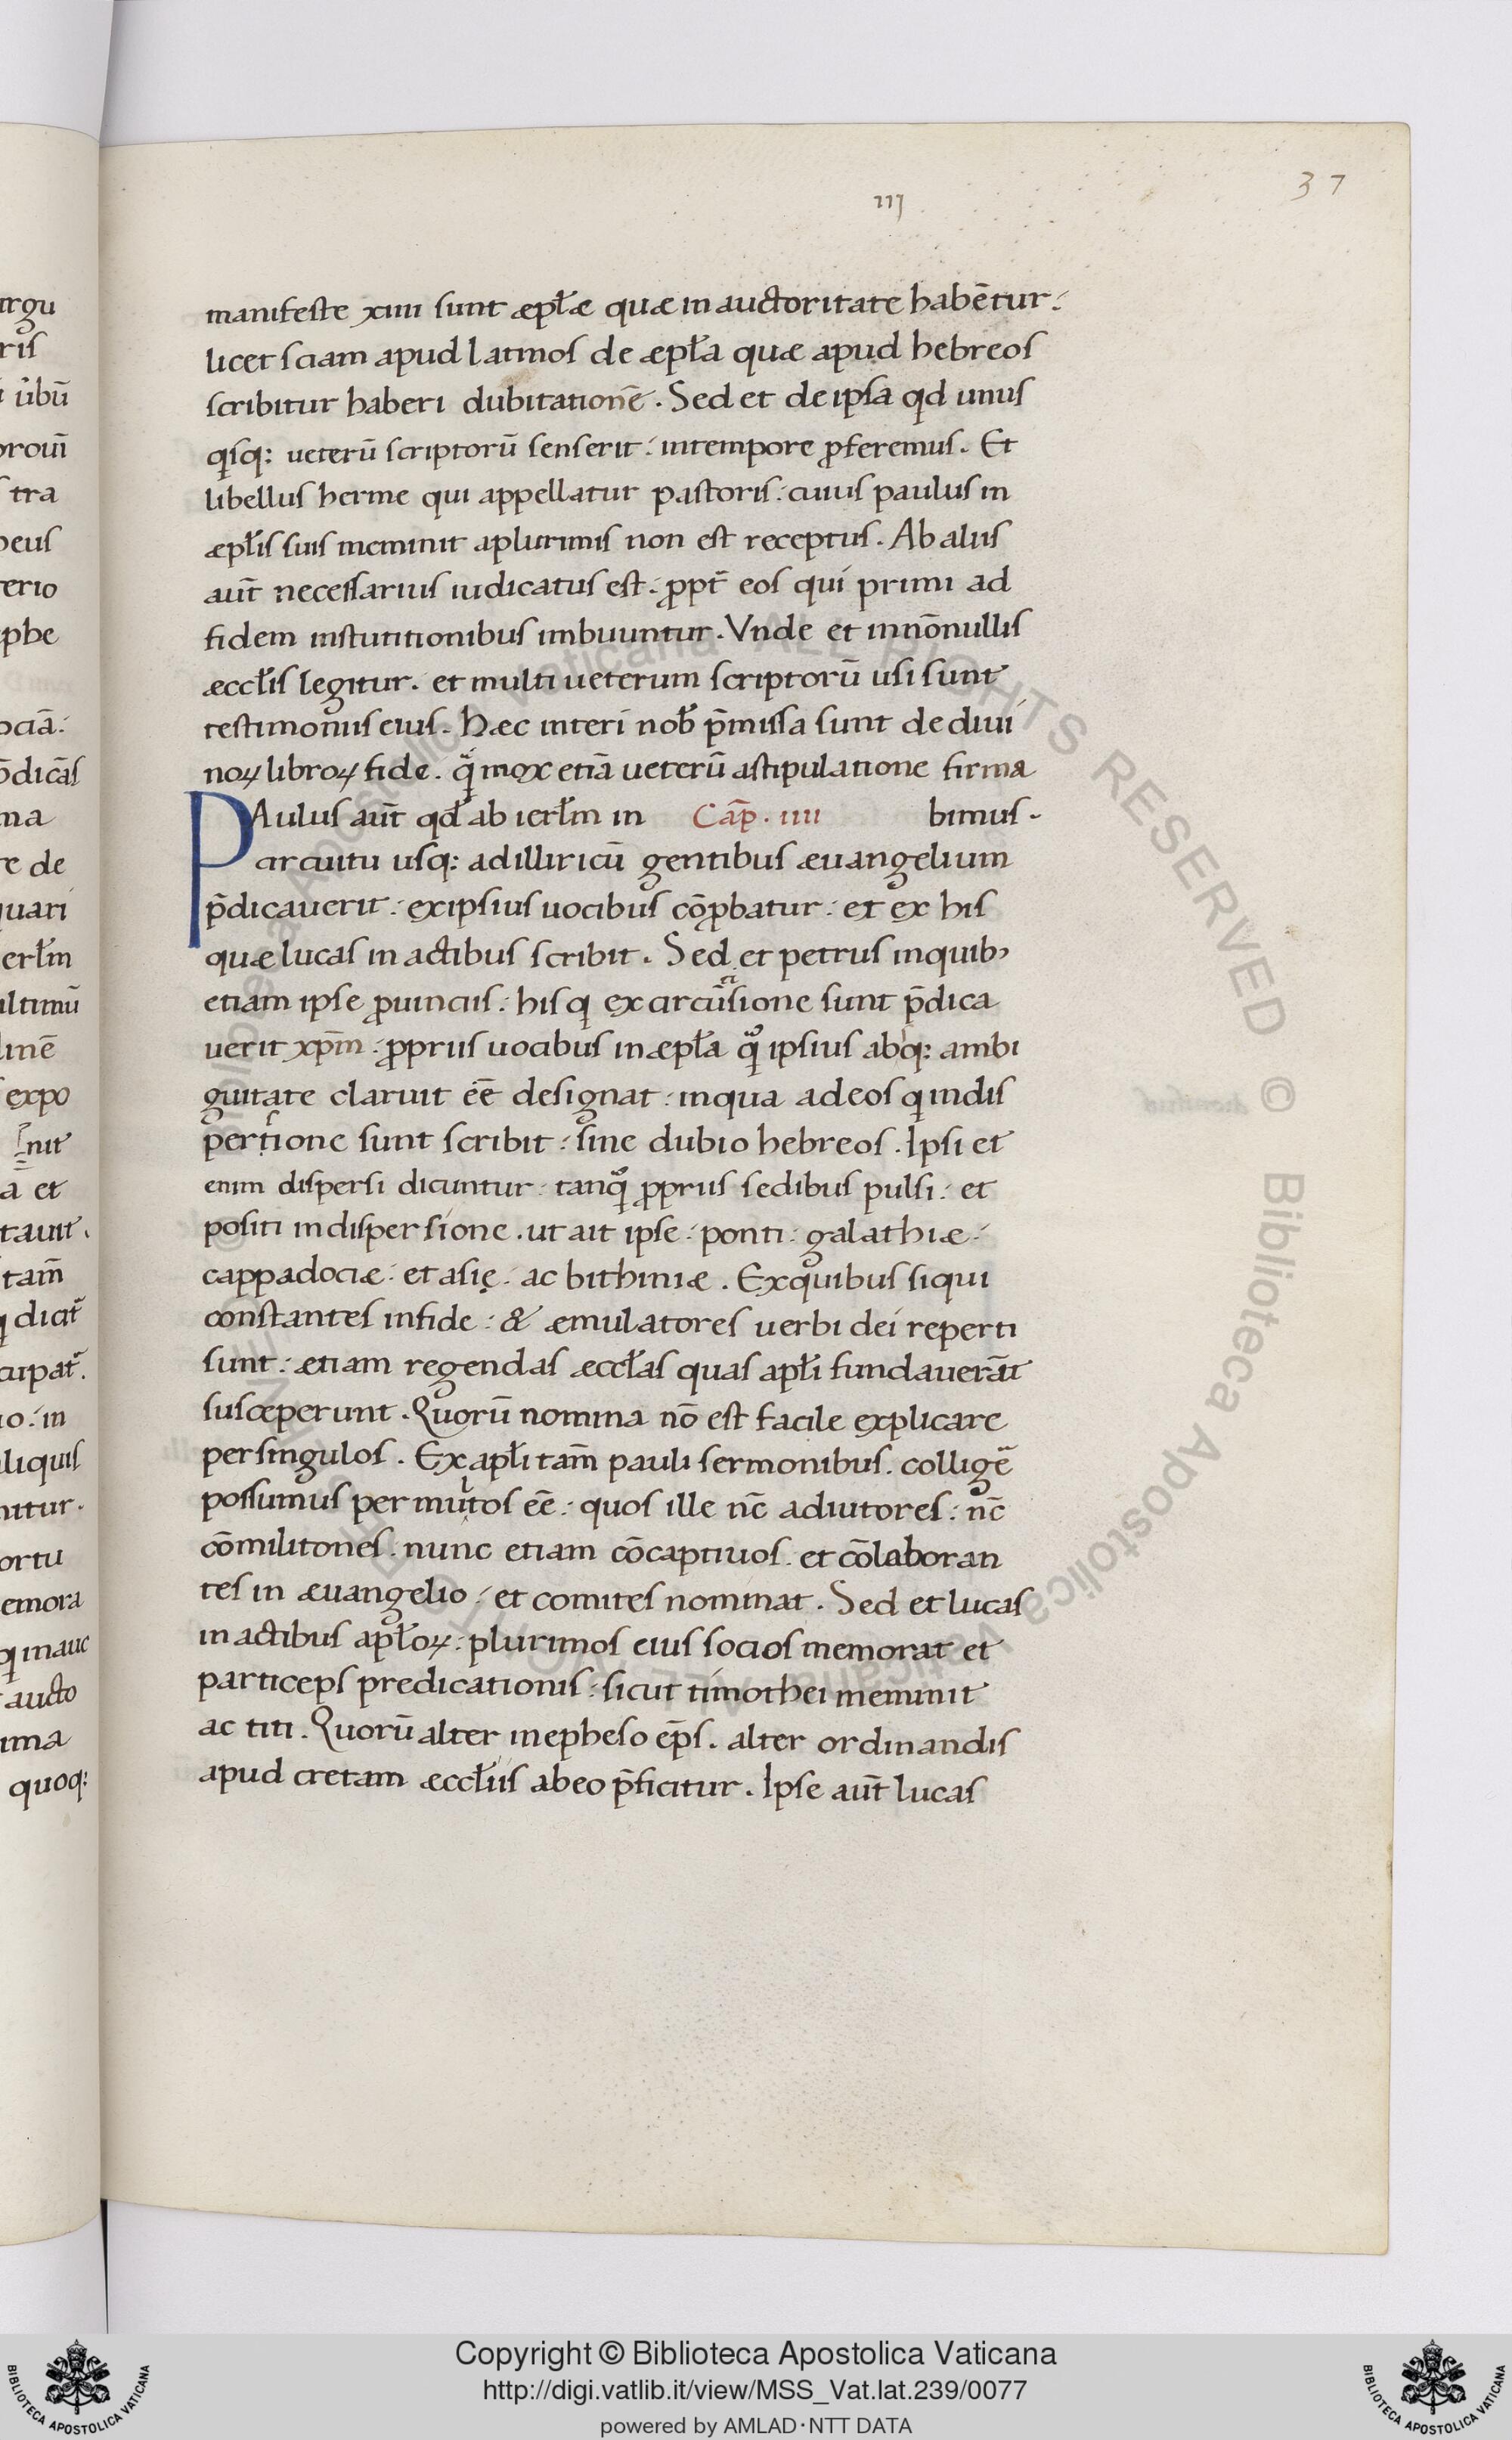 37
iij
manifeste xiiii sunt æpłæ quæ in auctoritate habētur:
licet sciam apud latinos de æpła quæ apud hebreos
scribitur haberi dubitationē. Sed et de ipsa qd unus
qsq: ueterū scriptorū senserit: in tempore ꝓferemus. Et
libellus herme qui appellatur pastoris: cuius paulus in
æpłis suis meminit a plurimis non est receptus. Ab aliis
aūt necessarius iudicatus est: ꝓpt̄ eos qui primi ad
fidem instutitionibus imbuuntur. Vnde et in nōnullis
æccłis legitur. et multi ueterum scriptorū usi sunt
testimoniis eius. Hæc interī nob̄ p̄missa sunt de diui
noꝝ libroꝝ fide. qͣ̄ mox etiā ueterū astipulatione firma
PAulus aūt qđ ab ierłm in Cap̄. iiii bimus.
circuitu usq: ad illiricū gentibus æuangelium
p̄dicauerit: ex ipsius uocibus cōꝓbatur: et ex his
quæ lucas in actibus scribit. Sed et petrus in quib;
etiam ipse ꝓuinciis: his q ex circūsione sunt p̄dica
uerit xp̄m: ꝓpriis uocibus in æpła qͦ̄ ipsius absq: ambi
guitate claruit eē designat: in qua ad eos q in dis
persione sunt scribit: sine dubio hebreos. Ipsi et
enim dispersi dicuntur: tanqͦ̄ ꝓpriis sedibus pulsi: et
positi in dispersione. ut ait ipse: ponti: galathiæ:
cappadociæ: et asię: ac bithiniæ. Ex quibus siqui
constantes in fide: & æmulatores uerbi dei reperti
sunt: ætiam regendas æccłas quas apłi fundauerāt
susceperunt. Quorū nomina nō est facile explicare
per singulos. Ex apłi tam̄ pauli sermonibus. colligē
possumus per multos eē: quos ille nc̄ adiutores: nc̄
cōmilitones. nunc etiam cōcaptiuos. et cōlaboran
tes in æuangelio: et comites nominat. Sed et lucas
in actibus apłoꝝ: plurimos eius socios memorat et
particeps predicationis: sicut timothei meminit
ac titi. Quorū alter in epheso ep̄s. alter ordinandis
apud cretam æccłiis ab eo p̄ficitur. Ipse aūt lucas
Copyright © Biblioteca Apostolica Vaticana
http://digi.vatlib.it/view/MSS_Vat.lat.239/0077
powered by AMLAD·NTT DATA